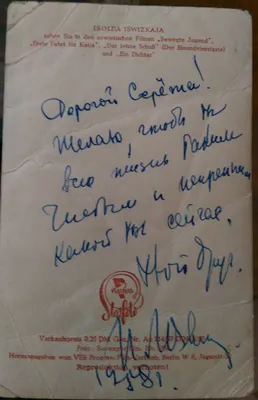 ISOLDA ISWIZKAJA
sahen Sie in den sowjetischen Filmen „Bewegte Jugend",
„Freie Fahrt für Katja", „Der letzte Schuß" (Der Einundvierzigste)
und „Ein Dichter"
Дорогой Серёжа!
Желаю, чтобы ты
всю жизнь таким
чистым и искренним
какой ты сейчас.
Твой друг.
Progress
Starfoto
Verkaufspreis 0,25 DM
Foto:
Herausgegeben vom VEB Progress Berlin W 8,
Reproduktion verboten!